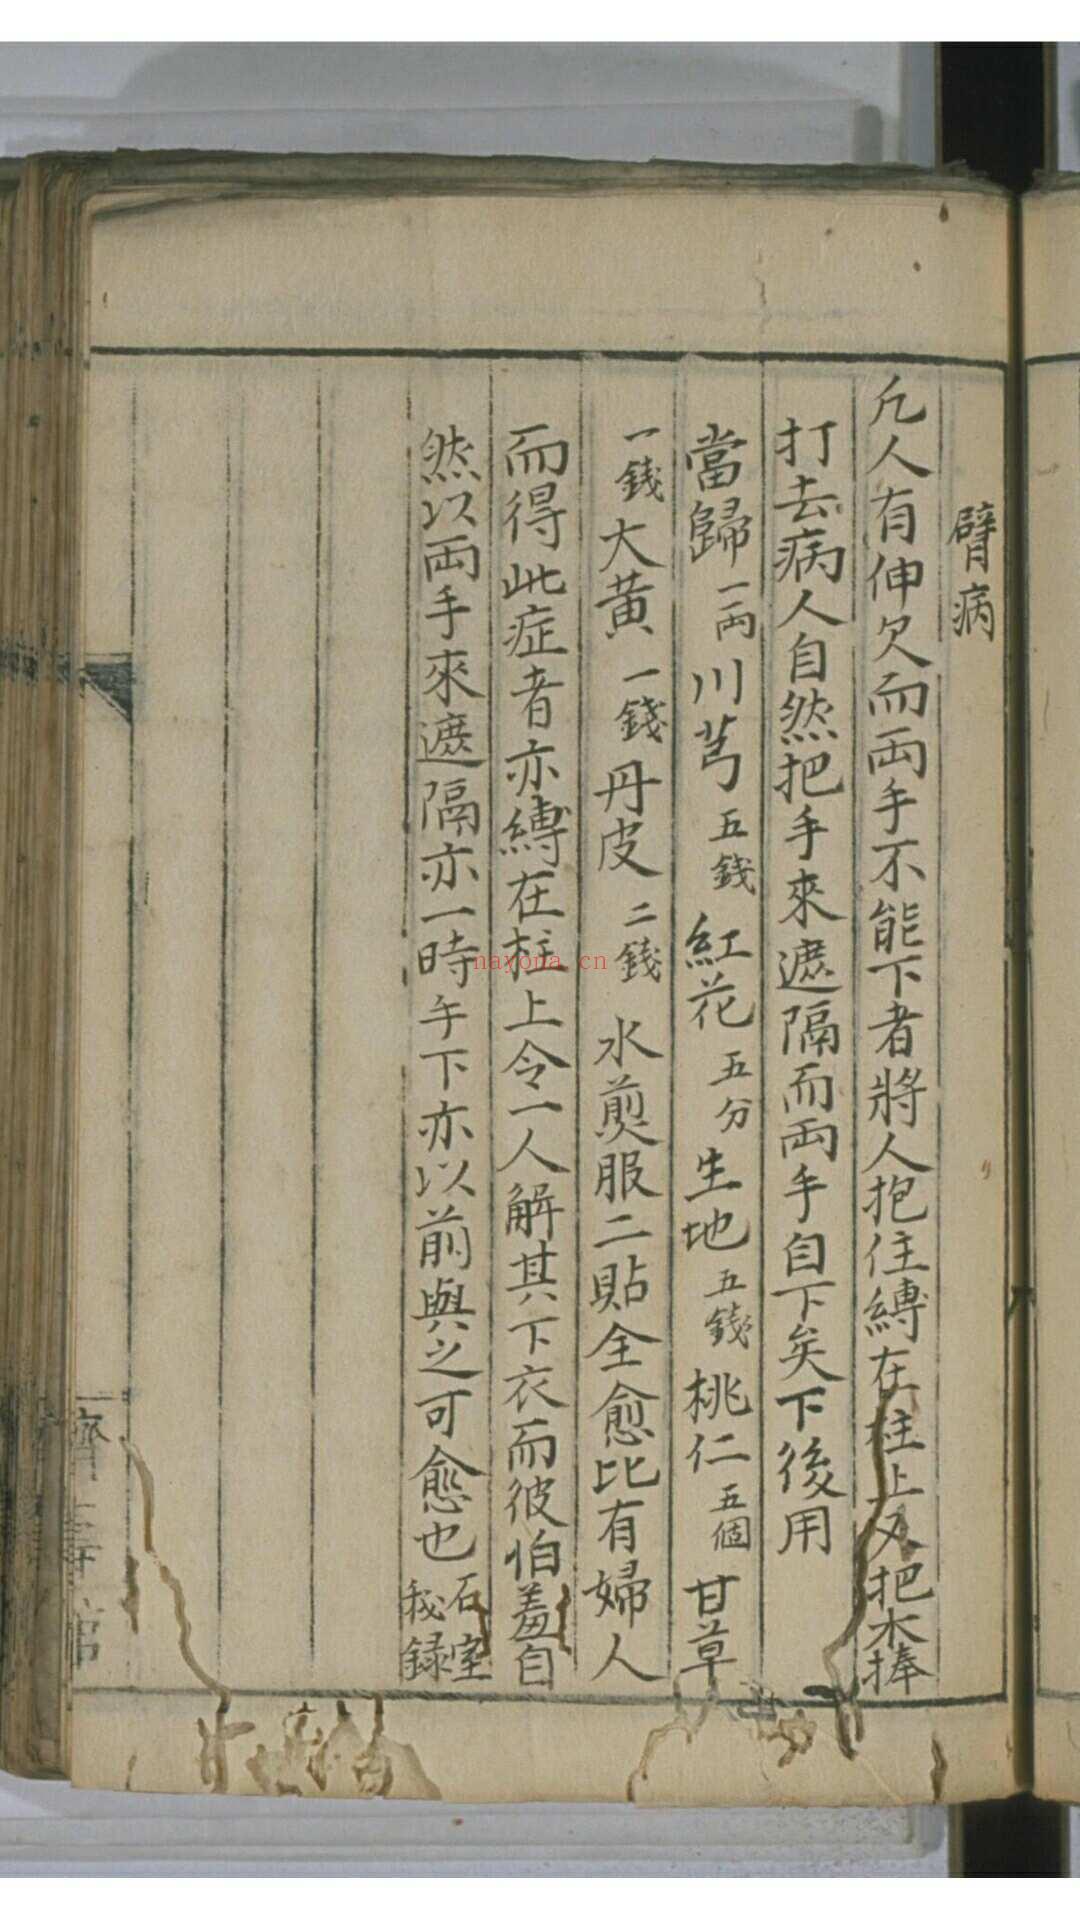 臂病
凡人有伸欠而両手不能下者將人抱住縛在柱上又把木捧
打去病人自然把手來遮隔而両手自下矣下後用
當歸一両川芎五錢紅花五分生地五錢桃仁五個甘草
一錢大黄一錢丹皮二錢水煎服二貼全愈比有婦人
而得此症者亦縛在柱上令一人解其下衣而彼怕羞自
然以両手來遮隔亦一時手下亦以前與之可愈也石室秘録
nayona.cn